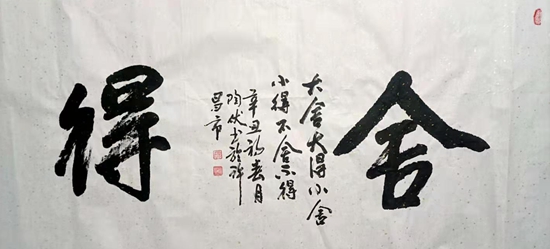 舍
得
大舍大得小舍
小得不舍不得
辛丑初春月
昌市